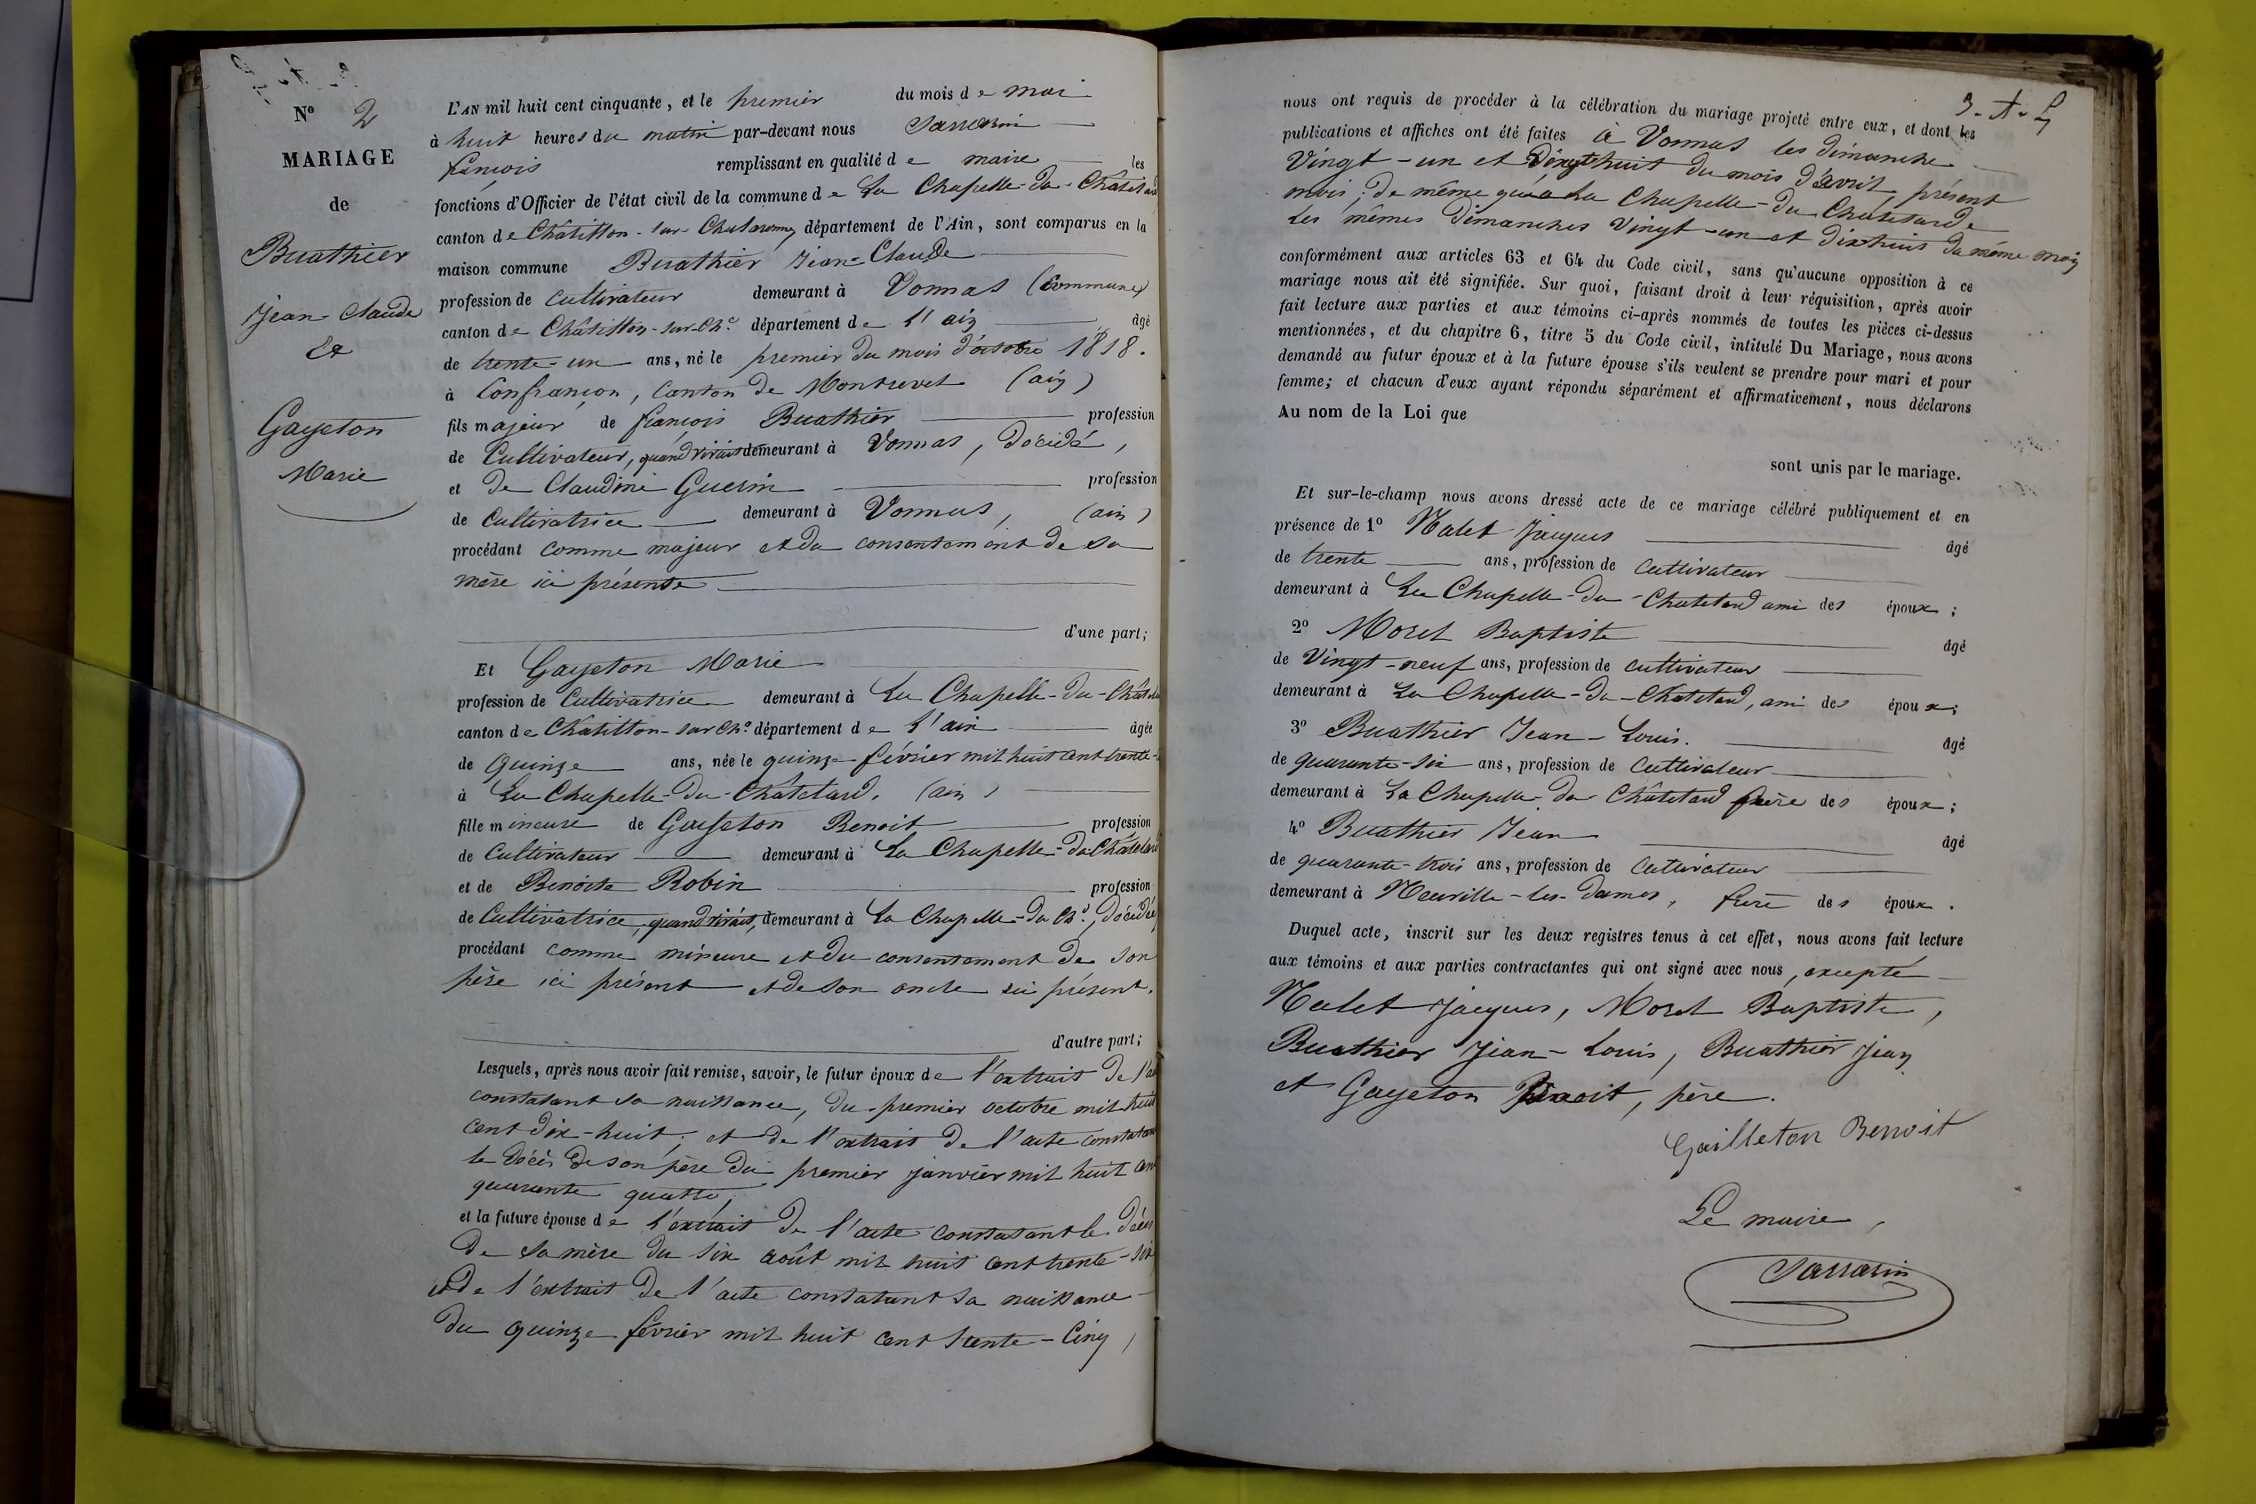 Nº 2
MARIAGE
de
Buathier
Jean-Claude
Et
Gayeton
Marie
L'AN mil huit cent cinquante, et le premier du mois de mai
à huit heures du matin par-devant nous Sarrasin
françois remplissant en qualité de maire les
fonctions d'Officier de l'état civil de la commune de La Chapelle-du-Châtelard
canton de Châtillon-sur-Chalaronne, département de l'Ain, sont comparus en la
maison commune Buathier Jean-Claude
profession de Cultivateur demeurant à Vonnas (Commune)
canton de Châtillon-sur-Ch.e département de l'ain âgé
de trente-un ans, né le premier du mois d'octobre 1818.
à Confrançon, Canton de Montrevel (ain)
fils majeur de françois Buathier profession
de Cultivateur, quand vivait demeurant à Vonnas, Décédé,
et de Claudine Guerin profession
de Cultivatrice demeurant à Vonnas, (ain)
procédant comme majeur et du consentement de sa
mère ici présente
d'une part;
Et Gayeton Marie
profession de Cultivatrice demeurant à La Chapelle-du-Châtelard
canton de Châtillon-sur Ch.e département de l'ain âgée
de Quinze ans, née le quinze février mil huit cent trente-
à La Chapelle-du-Châtelard. (ain)
fille mineure de Gayeton Benoit profession
de Cultivateur demeurant à La Chapelle-du Châtelard
et de Benoite Robin profession
de Cultivatrice, quand vivait, demeurant à La Chapelle-du Ch.d, Décédée,
procédant comme mineure et du consentement de son
père ici présent et de son oncle ici présent.
d'autre part;
Lesquels, après nous avoir fait remise, savoir, le futur époux de l'extrait de l'acte
constatant sa naissance, du premier octobre mil huit
cent dix-huit; et de l'extrait de l'acte constatant
le décès de son père du premier janvier mil huit cent
quarante quatre,
et la future épouse de l'extrait de l'acte constatant le décès
de sa mère du six août mil huit cent trente-six
et de l'extrait de l'acte constatant sa naissance
du quinze février mil huit cent trente-Cinq,
nous ont requis de procéder à la célébration du mariage projeté entre eux, et dont les
publications et affiches ont été faites à Vonnas les dimanche
Vingt-un et Vingthuit du mois d'avril, présent
mois; de même qu'à La Chapelle-du Chatelard
Les mêmes Dimanches Vingt-un et dixhuit du même mois
conformément aux articles 63 et 64 du Code civil, sans qu'aucune opposition à ce
mariage nous ait été signifiée. Sur quoi, faisant droit à leur réquisition, après avoir
fait lecture aux parties et aux témoins ci-après nommés de toutes les pièces ci-dessus
mentionnées, et du chapitre 6, titre 5 du Code civil, intitulé Du Mariage, nous avons
demandé au futur époux et à la future épouse s'ils veulent se prendre pour mari et pour
femme; et chacun d'eux ayant répondu séparément et affirmativement, nous déclarons
Au nom de la Loi que
sont unis par le mariage.
Et sur-le-champ nous avons dressé acte de ce mariage célébré publiquement et en
présence de 1º Nalet Jacques âgé
de trente ans, profession de Cultivateur
demeurant à La Chapelle-du-Chatelard ami des époux;
2º Morel Baptiste âgé
de Vingt-neuf ans, profession de cultivateur
demeurant à La Chapelle-du-Chatelard, ami des époux;
3º Buathier Jean-Louis. âgé
de quarante-six ans, profession de Cultivateur
demeurant à La Chapelle-du Châtelard frère des époux;
4º Buathier Jean âgé
de quarante-trois ans, profession de Cultivateur
demeurant à Neuville-les-Dames, frère des époux.
Duquel acte, inscrit sur les deux registres tenus à cet effet, nous avons fait lecture
aux témoins et aux parties contractantes qui ont signé avec nous, excepté
Nalet Jacques, Morel Baptiste,
Buathier Jean-Louis, Buathier Jean
et Gayeton Benoit, père.
Gailleton Benoit
Le maire,
Sarrasin